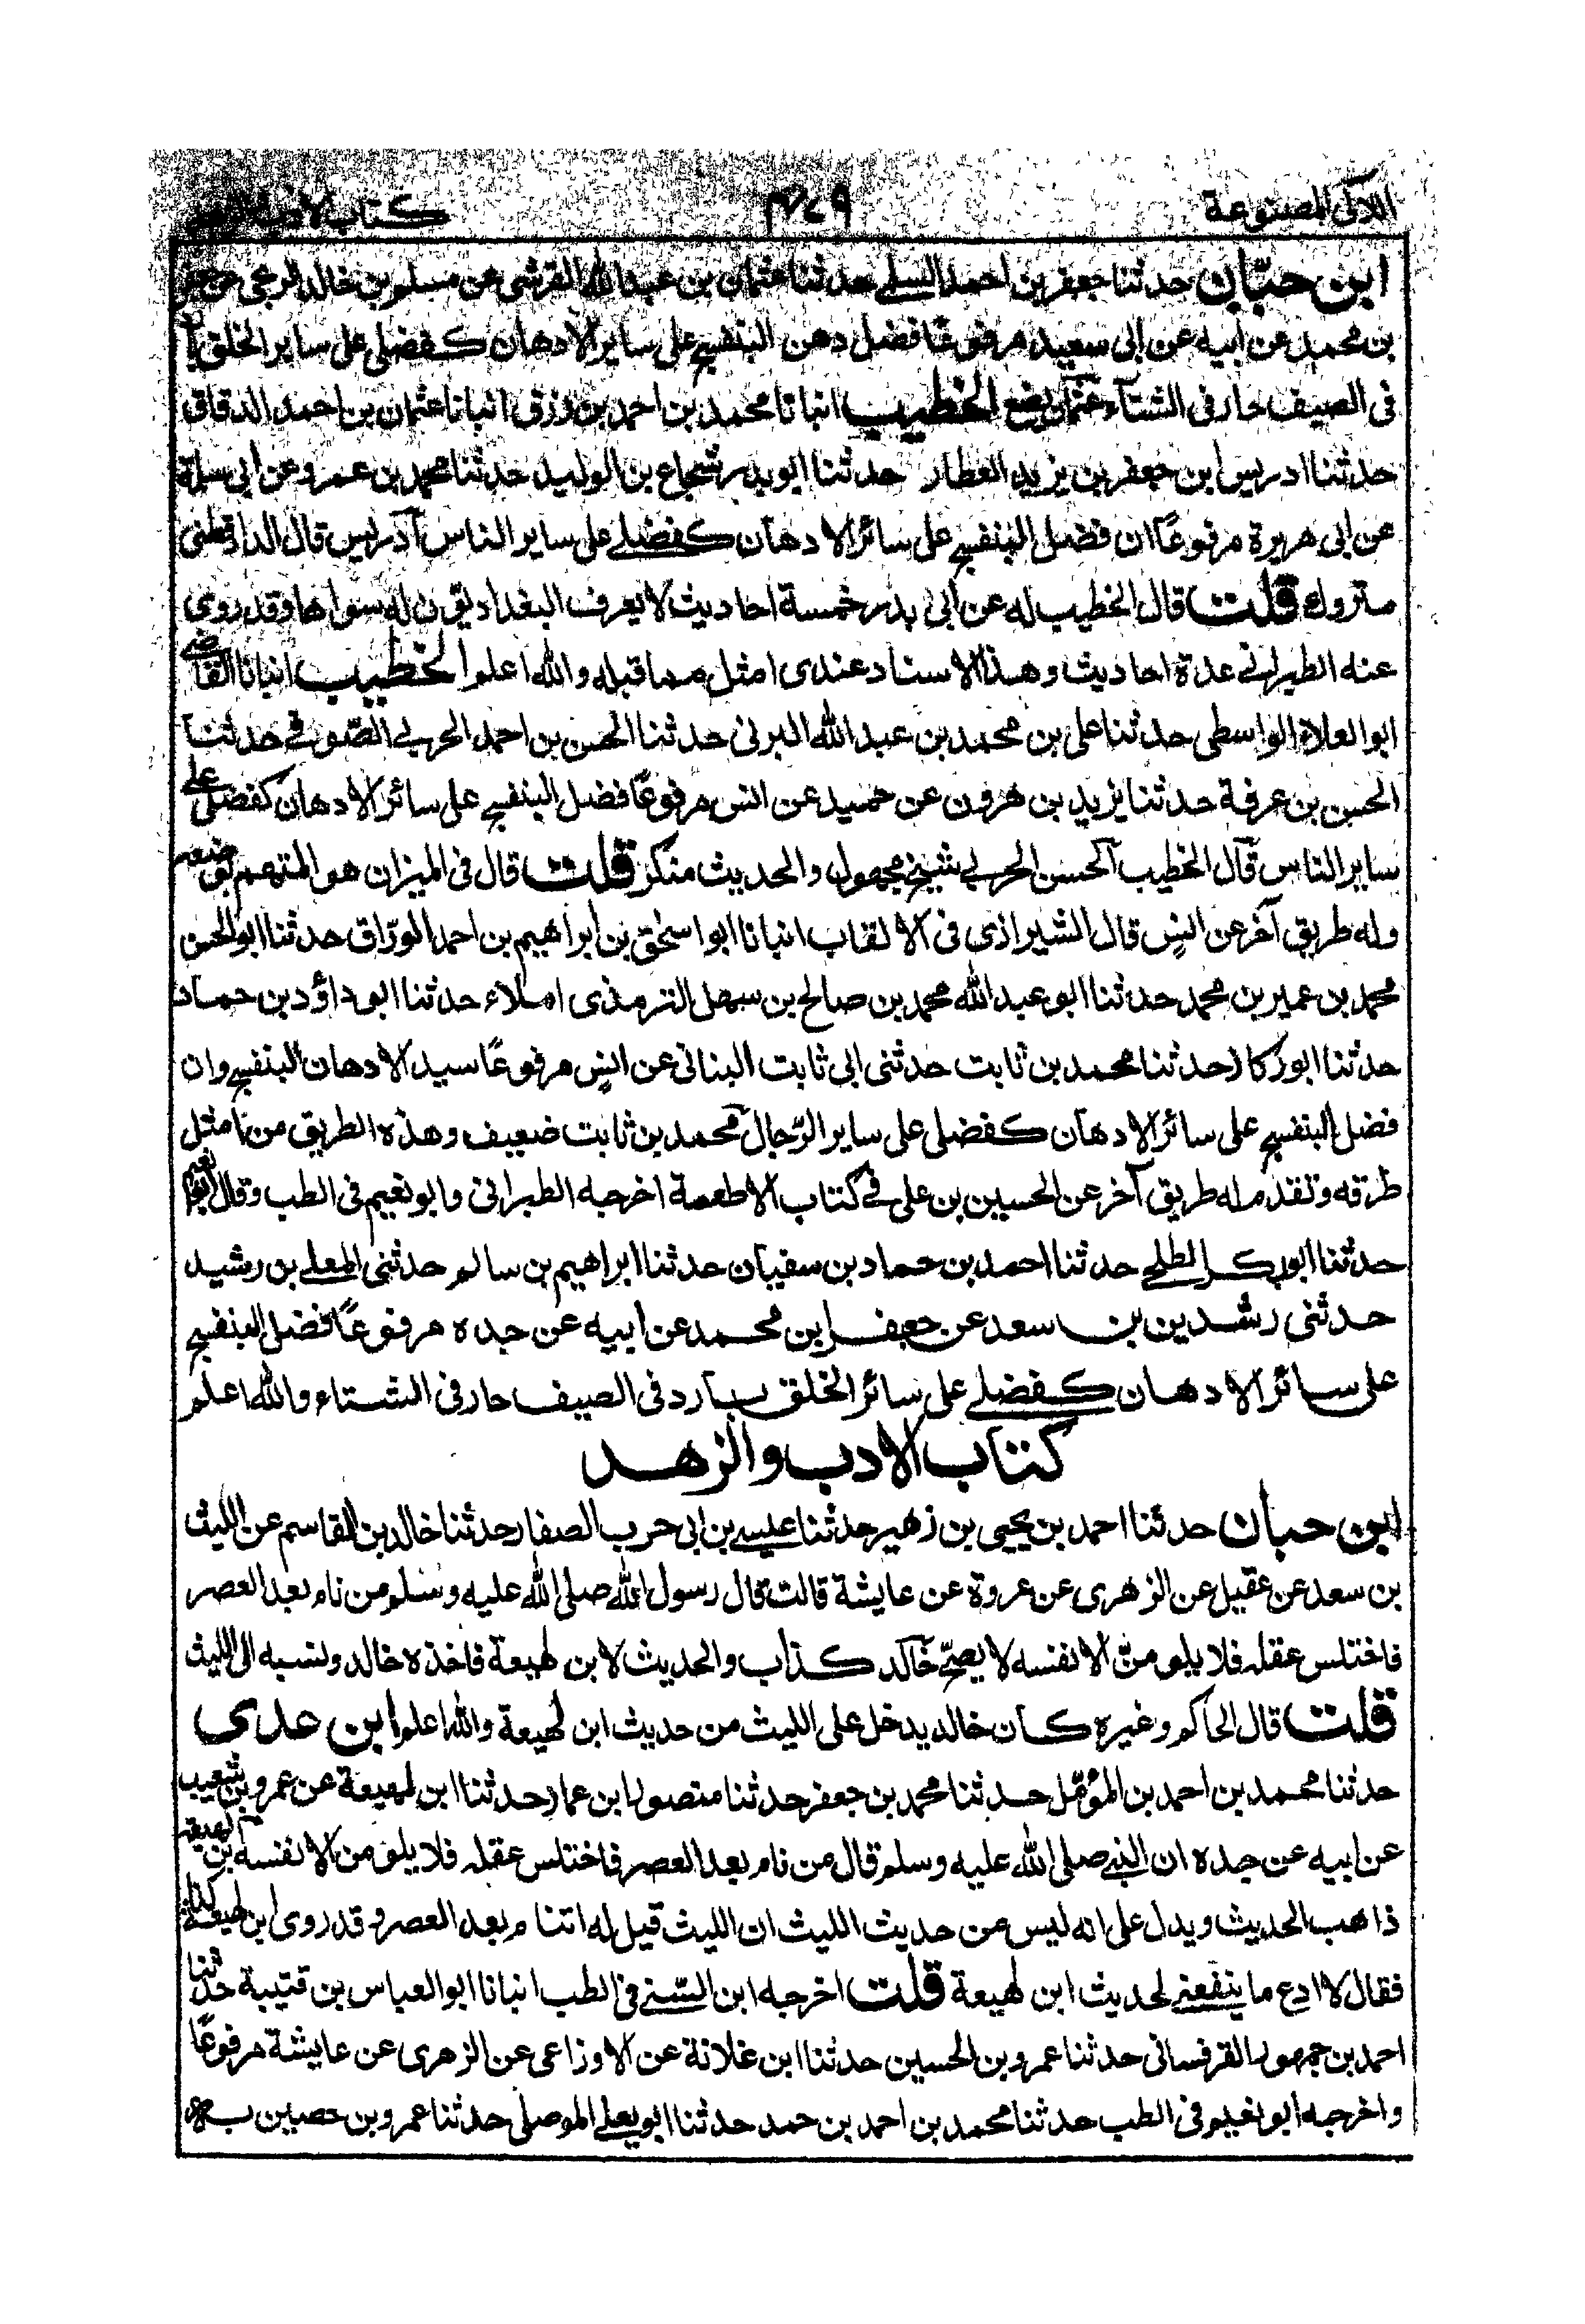 اللآلى المصنوعة ٤٧٩ كتاب الا
ابن حبّان حدثنا جعفر بن احمد السلمے حدثنا عثمان بن عبد الله القرشى عن مسلم بن خالد الزنجى عن جعفر
بن محمد عن ابيه عن ابى سعيد مرفوعًا فضل دهن البنفسج على ساير الادهان كفضلى على ساير الخلق بارد
فى الصيف حار فى الشتآء عثمان يضع الخطيب انبانا محمد بن احمد بن رزق انبانا عثمان بن احمد الدقاق
حدثنا ادريس ابن جعفر بن يزيد العطار حدثنا ابو بدر شجاع بن الوليد حدثنا محمد بن عمرو عن ابى سلمة
عن ابى هريرة مرفوعًا ان فضل البنفسج على سائر الادهان كفضلے على ساير الناس آدريس قال الدارقطنى
متروك قلت قال الخطيب له عن ابى بدر خمسة احاديث لا يعرف البغداديون له سواها وقد روى
عنه الطبرانے عدة احاديث وهذا الاسناد عندى امثل مما قبله والله اعلم الخطيب انبانا القاضے
ابو العلاء الواسطى حدثنا على بن محمد بن عبد الله البرنى حدثنا الحسن بن احمد الحربے الصّوفے حدثنا
الحسن بن عرفة حدثنا يزيد بن هرون عن حميد عن انس مرفوعًا فضل البنفسج على سائر الادهان كفضلى علے
ساير الناس قال الخطيب آلحسن الحربے شيخ مجهول والحديث منكر قلت قال فى الميزان هو المتهم بوضعه
وله طريق آخر عن انس قال الشيرازى فى الالقاب انبانا ابو اسحٰق بن ابراهيم بن احمد الورّاق حدثنا ابو الحسن
محمد بن عمير بن محمد حدثنا ابو عبد الله محمد بن صالح بن سهل الترمذى املاء حدثنا ابو داؤد بن حماد
حدثنا ابو ركاز حدثنا محمد بن ثابت حدثنى ابى ثابت البنانى عن انس مرفوعًا سيد الادهان البنفسج وان
فضل البنفسج على سائر الادهان كفضلى على ساير الرّجال محمد بن ثابت ضعيف وهذه الطريق من امثل
طرقه وتقدم له طريق آخر عن الحسين بن على فے كتاب الاطعمة اخرجه الطبرانى وابو نعيم فى الطب وقال ابو نعيم
حدثنا ابو بكر الطلحے حدثنا احمد بن حماد بن سفيان حدثنا ابراهيم بن سالم حدثنى المعلے بن رشيد
حدثنى رشدين بن سعد عن جعفر ابن محمد عن ابيه عن جده مرفوعًا فضل البنفسج
على سائر الادهان كفضلے على سائر الخلق بارد فى الصيف حار فى الشتاء والله اعلم
كتاب الادب والزهد
ابن حبان حدثنا احمد بن يحيى بن زهير حدثنا عيسے بن ابى حرب الصفار حدثنا خالد بن القاسم عن الليث
بن سعد عن عقيل عن الزهرى عن عروة عن عايشة قالت قال رسول الله صلى الله عليه وسلم من نام بعد العصر
فاختلس عقله فلا يلومنّ الا نفسه لا يصحّ خالد كذاب والحديث لابن لهيعة فاخذه خالد ونسبه الى الليث
قلت قال الحاكم وغيره كان خالد يدخل على الليث من حديث ابن لهيعة والله اعلم ابن عدى
حدثنا محمد بن احمد بن المؤمّل حدثنا محمد بن جعفر حدثنا منصور ابن عمار حدثنا ابن لهيعة عن عمرو بن شعيب
عن ابيه عن جده ان النبے صلى الله عليه وسلم قال من نام بعد العصر فاختلس عقله فلا يلومن الا نفسه بن لهيعة
ذاهب الحديث ويدل على انه ليس من حديث الليث ان الليث قيل له اتنام بعد العصر وقد روى ابن لهيعة كذا
فقال لا ادع ما ينفعنے لحديث ابن لهيعة قلت اخرجه ابن السّنے فى الطب انبانا ابو العباس بن قتيبة حدثنا
احمد بن جمهور القرفسانى حدثنا عمرو بن الحسين حدثنا ابن غلاثة عن الاوزاعى عن الزهرى عن عايشة مرفوعًا
واخرجه ابو نعيم فى الطب حدثنا محمد بن احمد بن حمد حدثنا ابو يعلے الموصلى حدثنا عمرو بن حصين به